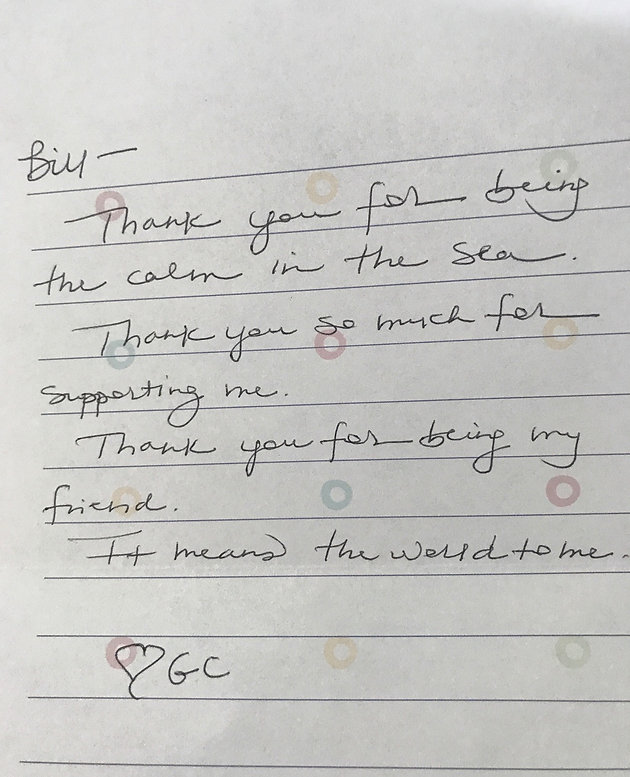 Bill—
Thank you for being
the calm in the sea.
Thank you so much for
supporting me.
Thank you for being my
friend.
It means the world to me.
♡GC